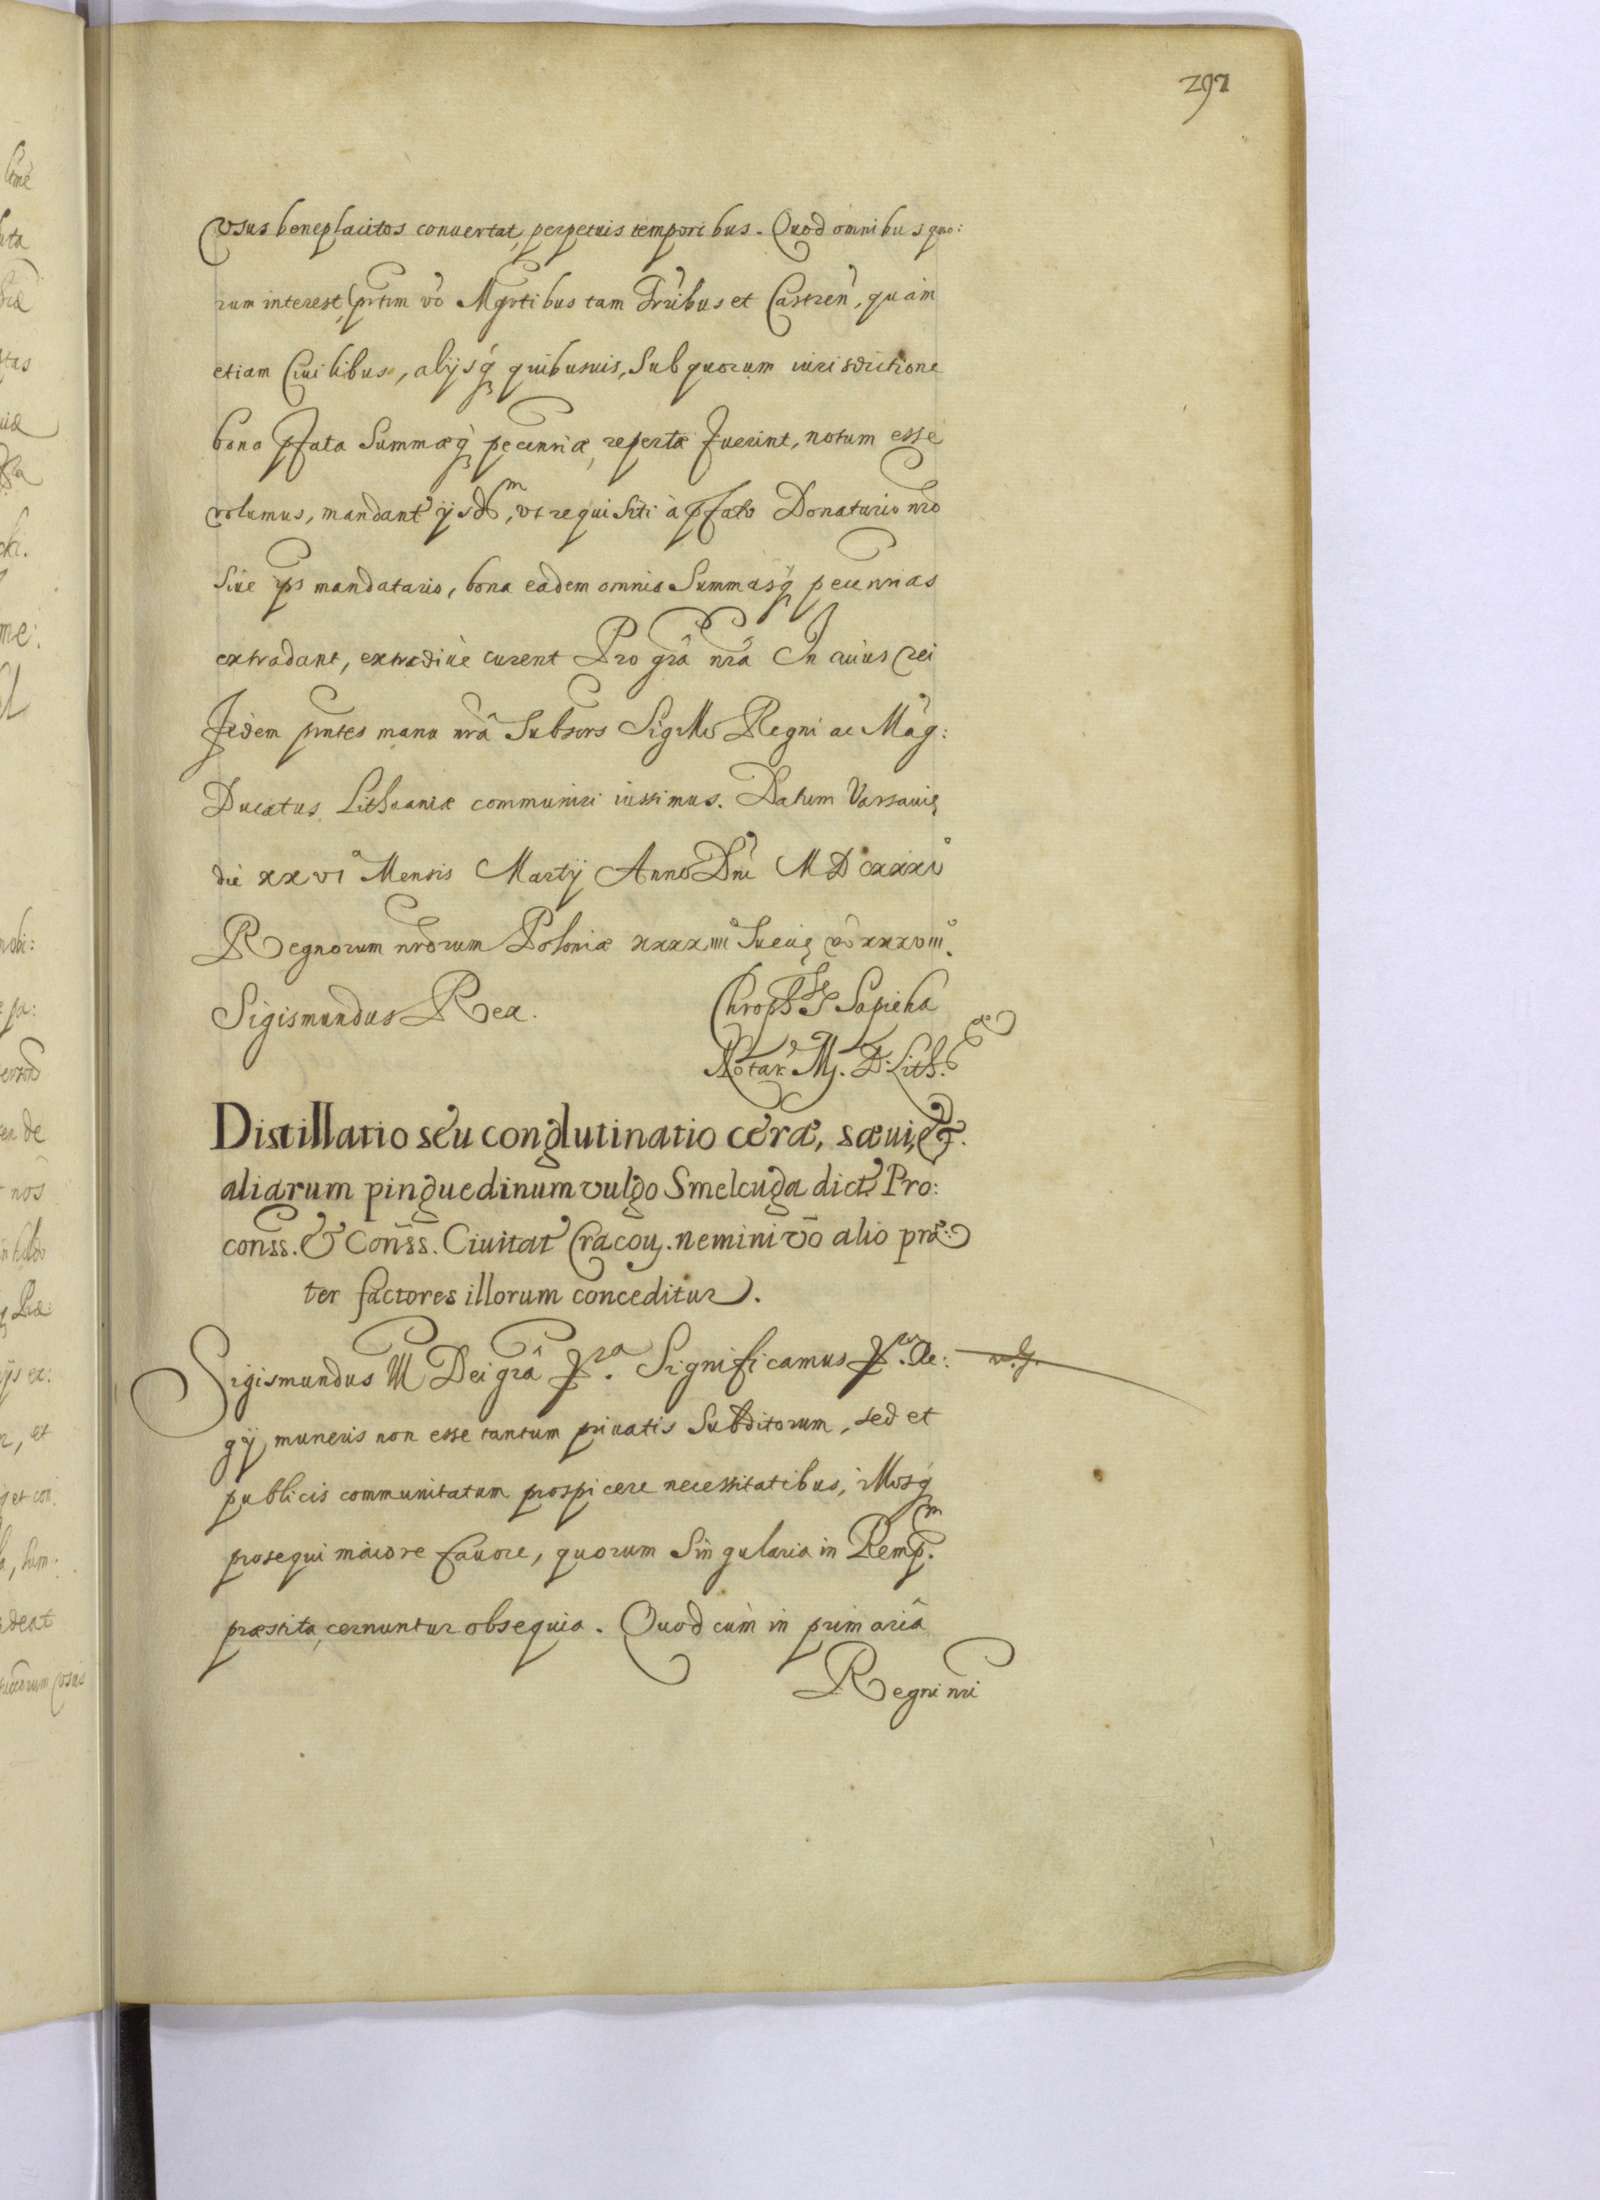 297
vsus beneplacitos conuertat, perpetuis temporibus. Quod omnibus quo:
rum interest, prtim vo Mgrtibus tam Trribus et Castren, quam
etiam Ciuilibus, alijsq quibusuis, sub quorum iurisdictione
bona pfata summæq pecuniæ, repertæ fuerint, notum esse
volumus, mandant ijsdm, vt requisiti à pfato Donatario nro
siue ips mandatario, bona eadem omnia summasq pecunias
extradant, extradiue curent Pro gra nra In cuius rei
fidem pntes manu nra Subscrs Sigillo Regni ac Mag:
Ducatus Lithuaniæ communiri iussimus. Datum Varsauię
die xxvi Mensis Martij Anno Dni MDCxxxi
Regnorum nrorum Poloniæ xxxxiiii Sueuię vo xxxviii.
Sigismundus Rex.
Chroph Sapieha
Notar: M. D: Lith.
Distillatio seu conglutinatio ceræ, sæui, &
aliarum pinguedinum vulgo Smelcuga dict Pro:
conss. & Conss. Ciuitat Cracou. nemini vo alio præ:
ter factores illorum conceditur.
Sigismundus III Dei gra &ra. Significamus &. Re:
gij muneris non esse tantum priuatis Subditorum, sed et
publicis communitatum prospicere necessitatibus, illosq
prosequi maiore fauore, quorum singularia in Remp.m
præstita, cernuntur obsequia. Quod cum in primaria
Regni nri